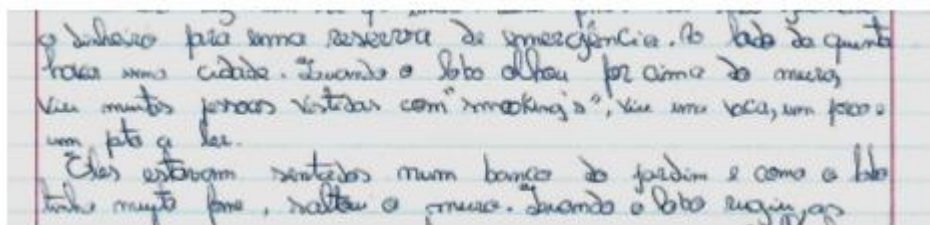 o dinheiro para uma reserva de emergência. Ao lado da quinta
havia uma cidade. Quando o lobo olhou por cima do muro,
viu muitas pessoas vestidas com "smoking's", viu uma vaca, um porco e
um pato a ler.
Eles estavam sentados num banco do jardim e como o lobo
tinha muyta fome, saltou o muro. Quando o lobo rugiu, as